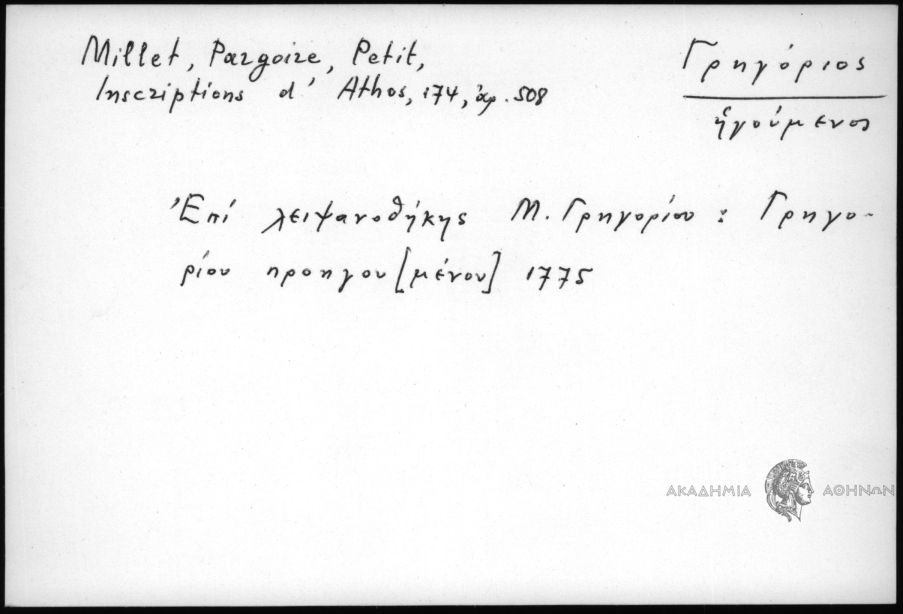 Millet, Pargoire, Petit,
Inscriptions d' Athos, 174, ἀρ. 508
Γρηγόριος
ἡγούμενος
Ἐπί λειψανοθήκης Μ. Γρηγορίου : Γρηγο-
ρίου προηγου[μένου] 1775
ΑΚΑΔΗΜΙΑ ΑΘΗΝΩΝ